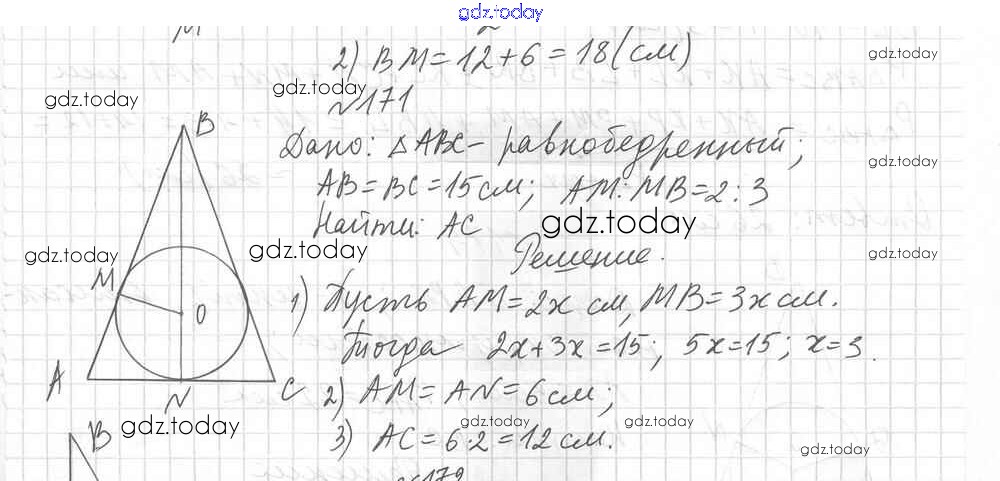 gdz.today
2) BM = 12 + 6 = 18 (см)
gdz.today
gdz.today gdz.today
№171
B
Дано: △ABC - равнобедренный;
gdz.today
AB = BC = 15 см; AM : MB = 2 : 3
Найти: AC
gdz.today
gdz.today gdz.today gdz.today
Решение.
M O
1) Пусть AM = 2x см, MB = 3x см.
Тогда 2x + 3x = 15; 5x = 15; x = 3.
A N C
2) AM = AN = 6 см;
gdz.today gdz.today gdz.today
3) AC = 6·2 = 12 см.
gdz.today
B
№172